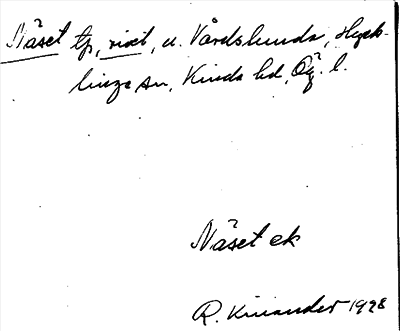 Näset tp, rivet, u. Vårdslunda, Hyck-
linge sn, Kinda hd, Ög. l.
Näset ek
R. Kinander 1928